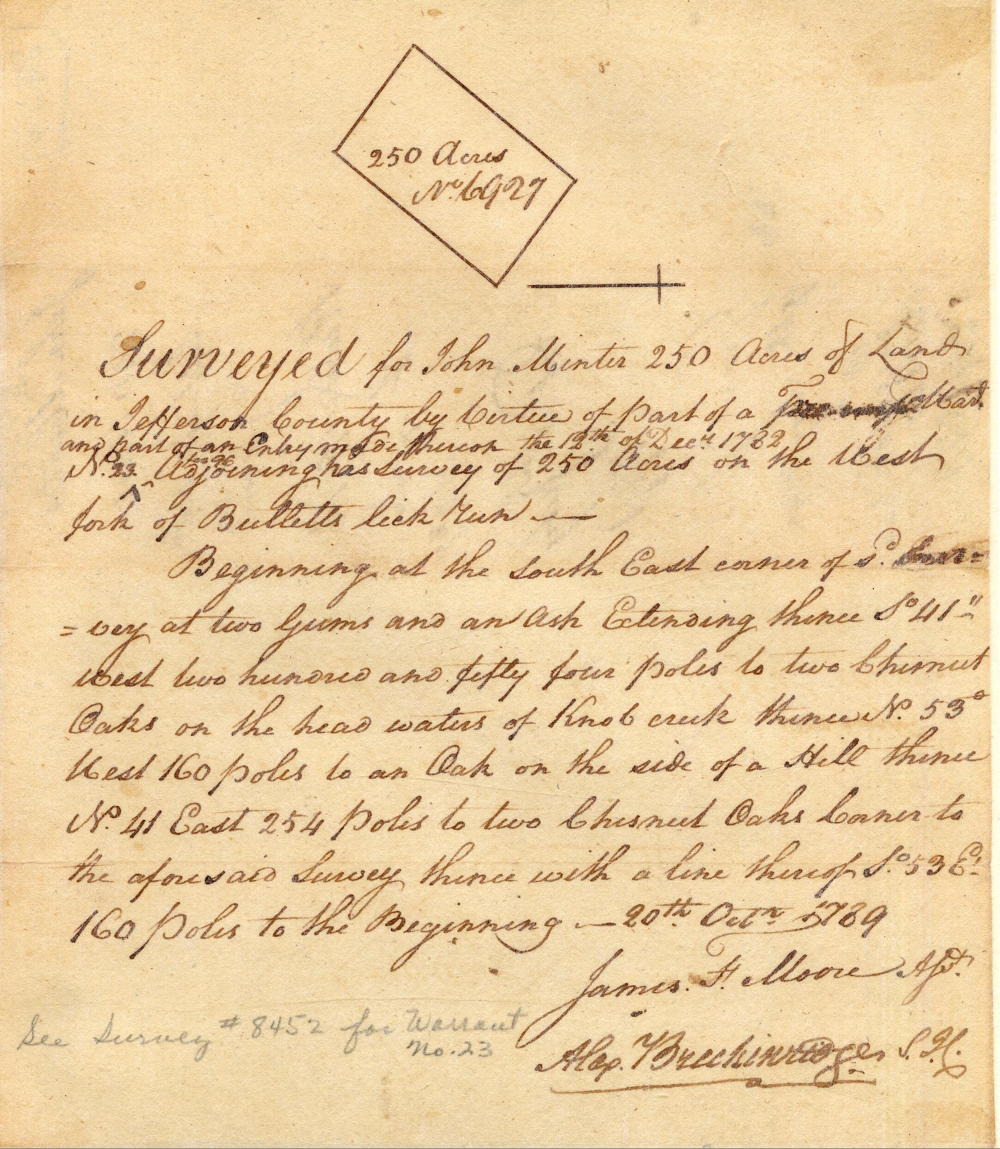 250 Acres
No. 6927
Surveyed for John Minter 250 Acres of Land
in Jefferson County by Virtue of part of a
and part of an Entry made thereon the 12th of Decr. 1782
No. 23 Adjoining his Survey of 250 Acres on the West
fork of Bulletts lick Run —
Beginning at the south East corner of sd. Sur=
=vey at two Gums and an Ash Extending thence So. 41
West two hundred and fifty four poles to two Chesnut
Oaks on the head waters of Knob creek thence N. 53°
West 160 poles to an Oak on the side of a Hill thence
N. 41 East 254 Poles to two Chesnut Oaks Corner to
the aforesaid Survey thence with a line thereof So. 53 Et.
160 Poles to the Beginning — 20th. Octr. 1789
James. F. Moore Asst.
Alex. Breckinridge S. J. C.
See Survey #8452 for Warrant
No. 23